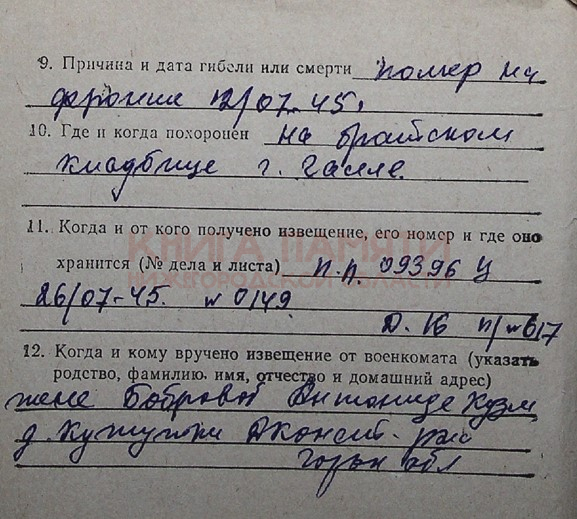 9. Причина и дата гибели или смерти помер на
фронте 12/07-45.
10. Где и когда похоронен на братском
кладбище г. Галле.
11. Когда и от кого получено извещение, его номер и где оно
КНИГА ПАМЯТИ
НИЖЕГОРОДСКОЙ ОБЛАСТИ
хранится (№ дела и листа) п.п. 09396 Ц
26/07-45. № 0149
Д. 16 п/№ 617
12. Когда и кому вручено извещение от военкомата (указать
родство, фамилию, имя, отчество и домашний адрес)
жене Бобровой Антонине Кузм
д. Д-Конст. р-на
Горьк обл